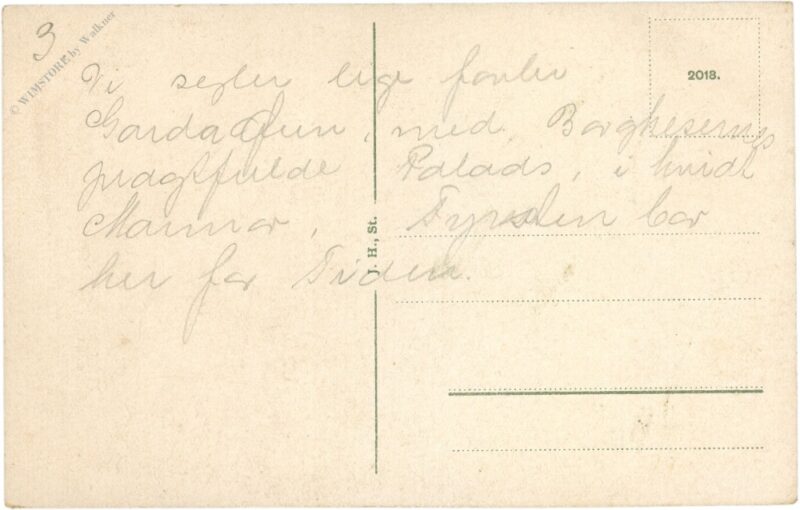 3
© WIMSTORE by Walkner
2018.
Vi segler lige forbi
Gardaøen, med Borghesernes
pragtfulde Palads, i hvidt
Marmor, Fyrsten bor
her for Tiden.
J. H., St.